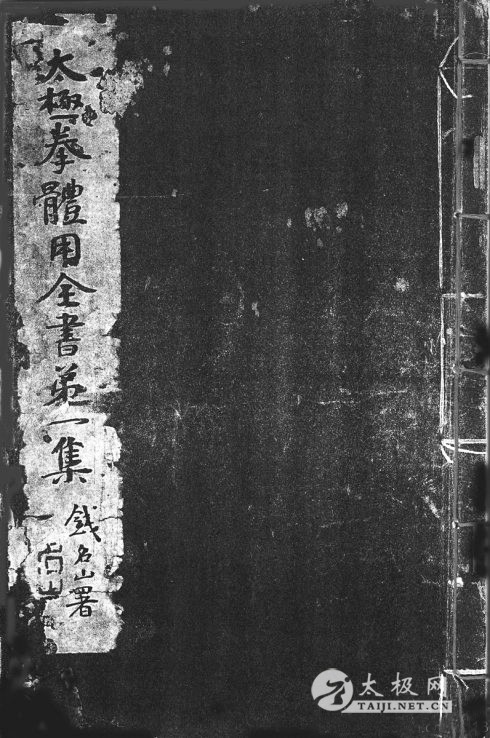 太極拳體用全書第一集
錢名山署
太极网
TAIJI.NET.CN